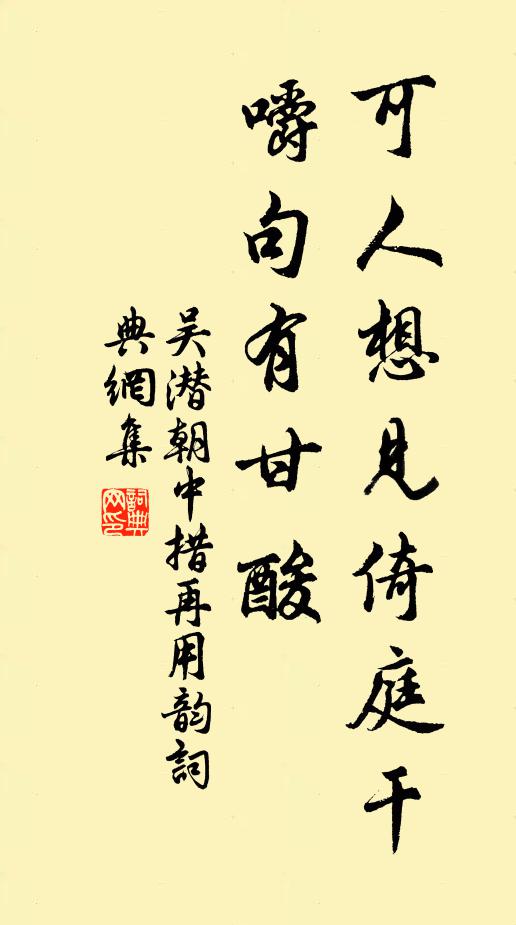 可人想见倚庭干
嚼句有甘酸
吴潜朝中措再用韵詞
典網集
詞典
网印